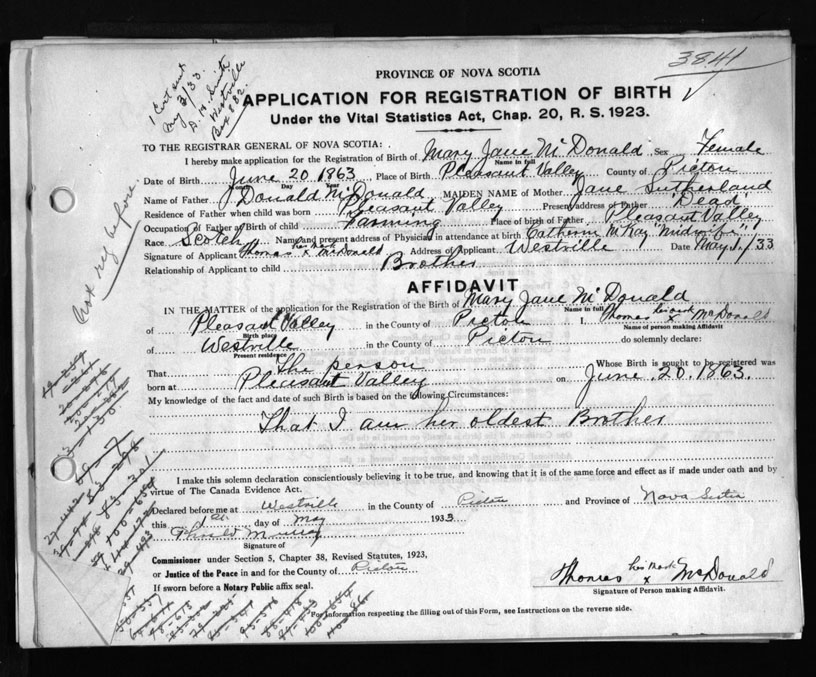 3841
1 Cert sent
May 3/33.
D. H. Smith
Westville
Box 882.
Not reg before.
PROVINCE OF NOVA SCOTIA
APPLICATION FOR REGISTRATION OF BIRTH
Under the Vital Statistics Act, Chap. 20, R. S. 1923.
TO THE REGISTRAR GENERAL OF NOVA SCOTIA:
I hereby make application for the Registration of Birth of Mary Jane McDonald Sex Female
Name in full
Date of Birth June 20 1863, Place of Birth Pleasant Valley County of Picton
Month Day Year
Name of Father Donald McDonald MAIDEN NAME of Mother Jane Sutherland
Residence of Father when child was born Pleasant Valley Present address of Father Dead
Occupation of Father at Birth of child Farming Place of birth of Father Pleasant Valley
Race Scotch Name and present address of Physician in attendance at birth Catherin McKay "Midwife"
Signature of Applicant Thomas his mark x McDonald Address of Applicant Westville Date May 1./33
Relationship of Applicant to child Brother
AFFIDAVIT
IN THE MATTER of the application for the Registration of the Birth of Mary Jane McDonald
Name in full
of Pleasant Valley in the County of Picton I, Thomas his mark x McDonald
Birth place Name of person making Affidavit
of Westville in the County of Picton do solemnly declare:
Present residence
That The person Whose Birth is sought to be registered was
born at Pleasant Valley on June 20 1863.
My knowledge of the fact and date of such Birth is based on the following Circumstances:
That I am her oldest Brother
I make this solemn declaration conscientiously believing it to be true, and knowing that it is of the same force and effect as if made under oath and by
virtue of The Canada Evidence Act.
Declared before me at Westville in the County of Picton and Province of Nova Scotia
this 1st day of May 1933
Signature of
Commissioner under Section 5, Chapter 38, Revised Statutes, 1923,
or Justice of the Peace in and for the County of Picton
If sworn before a Notary Public affix seal.
Thomas his mark x McDonald
Signature of Person making Affidavit.
For Information respecting the filling out of this Form, see Instructions on the reverse side.